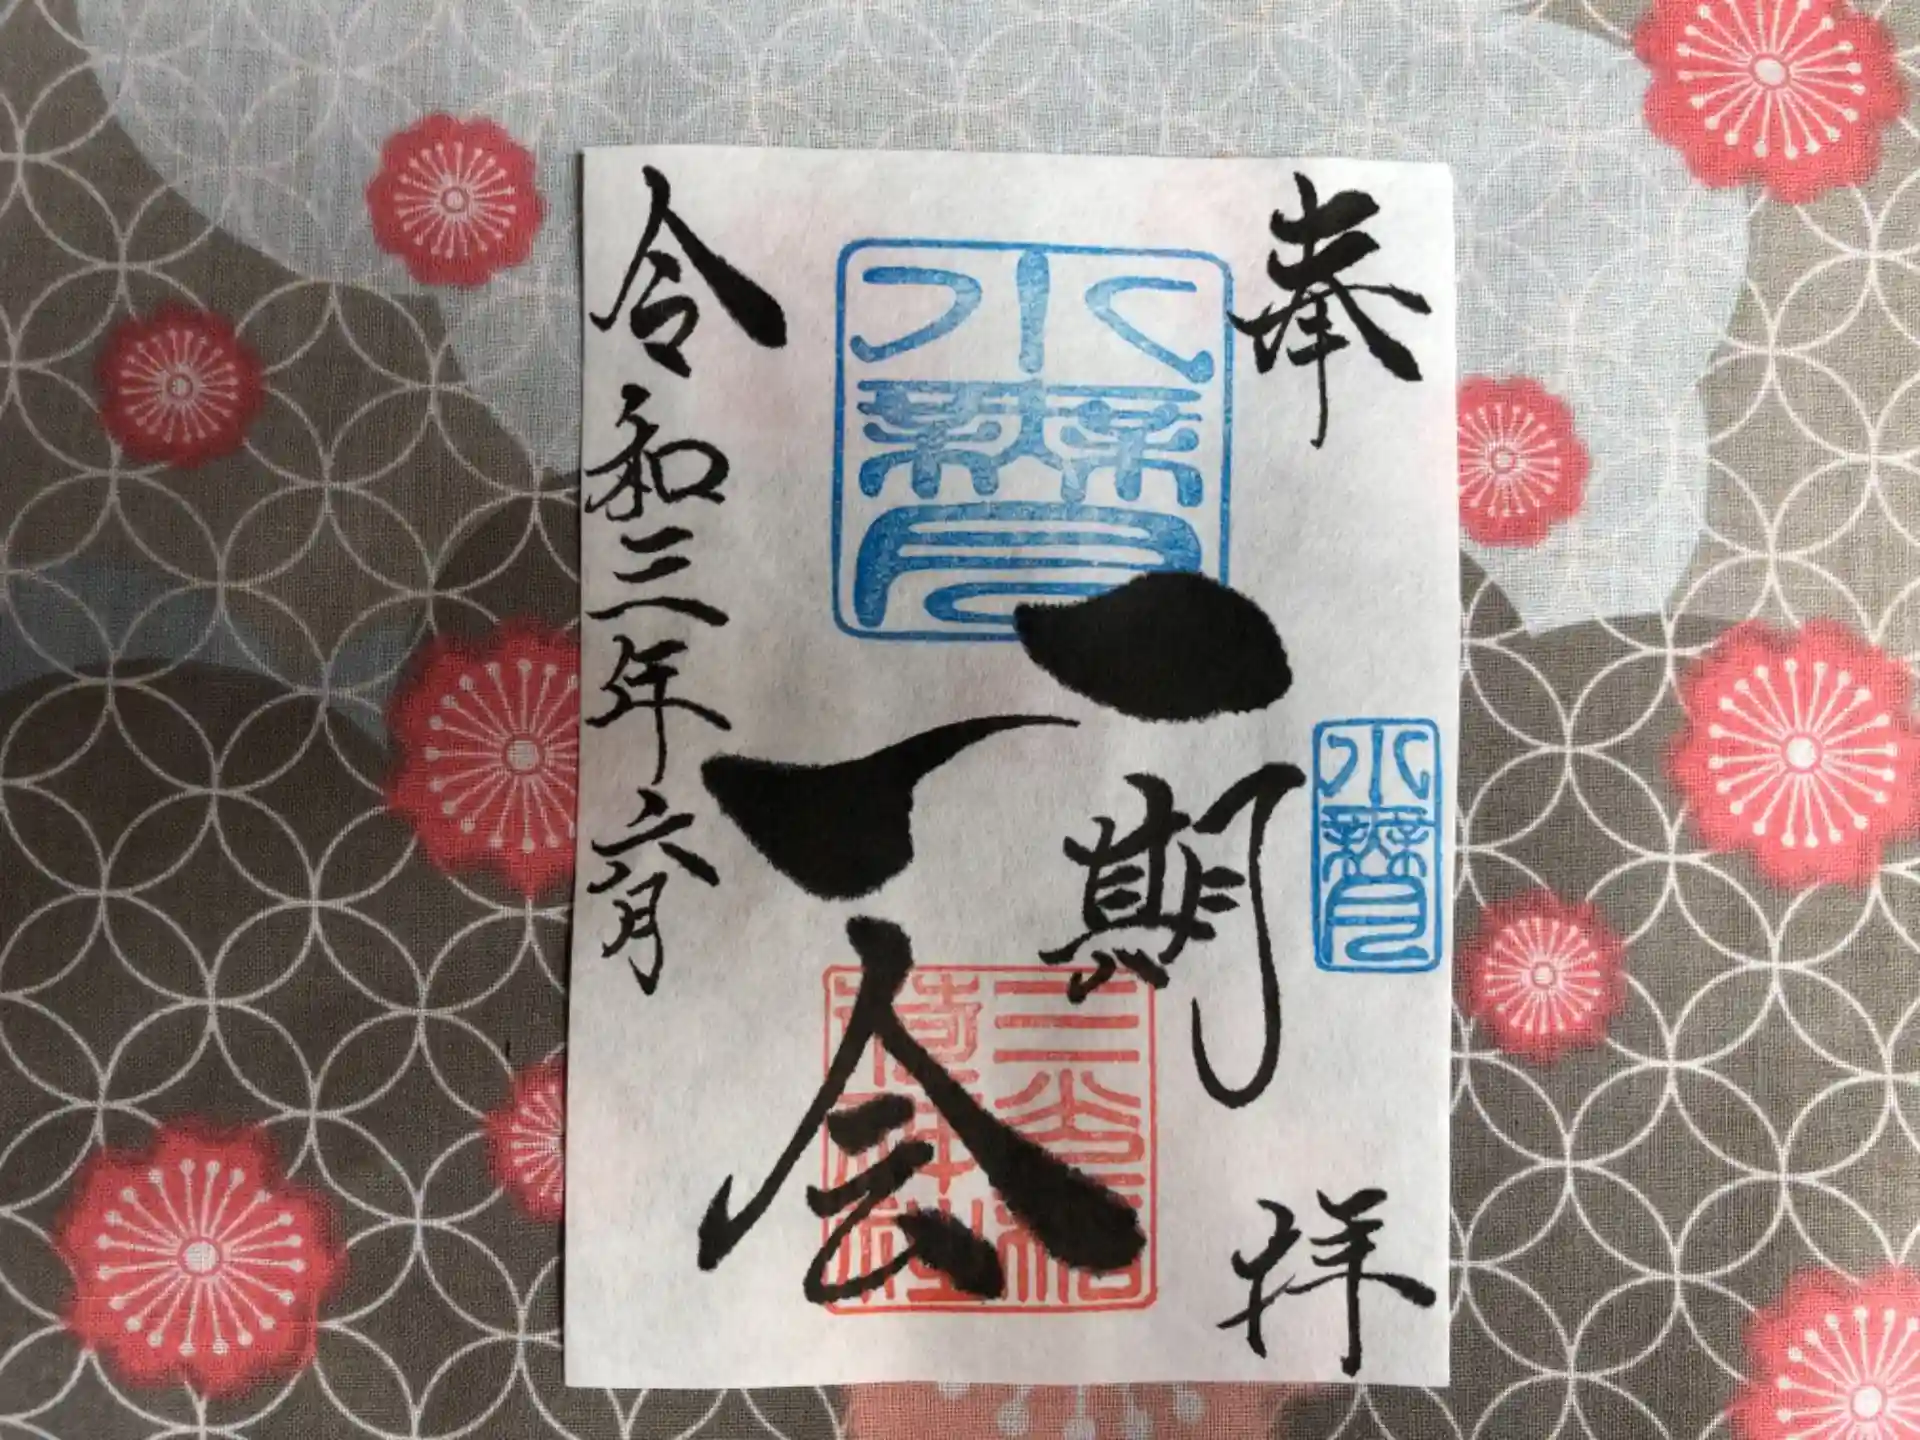 奉拝
水無月
水無月
一期
一会
三光稲
荷神社
令和三年六月